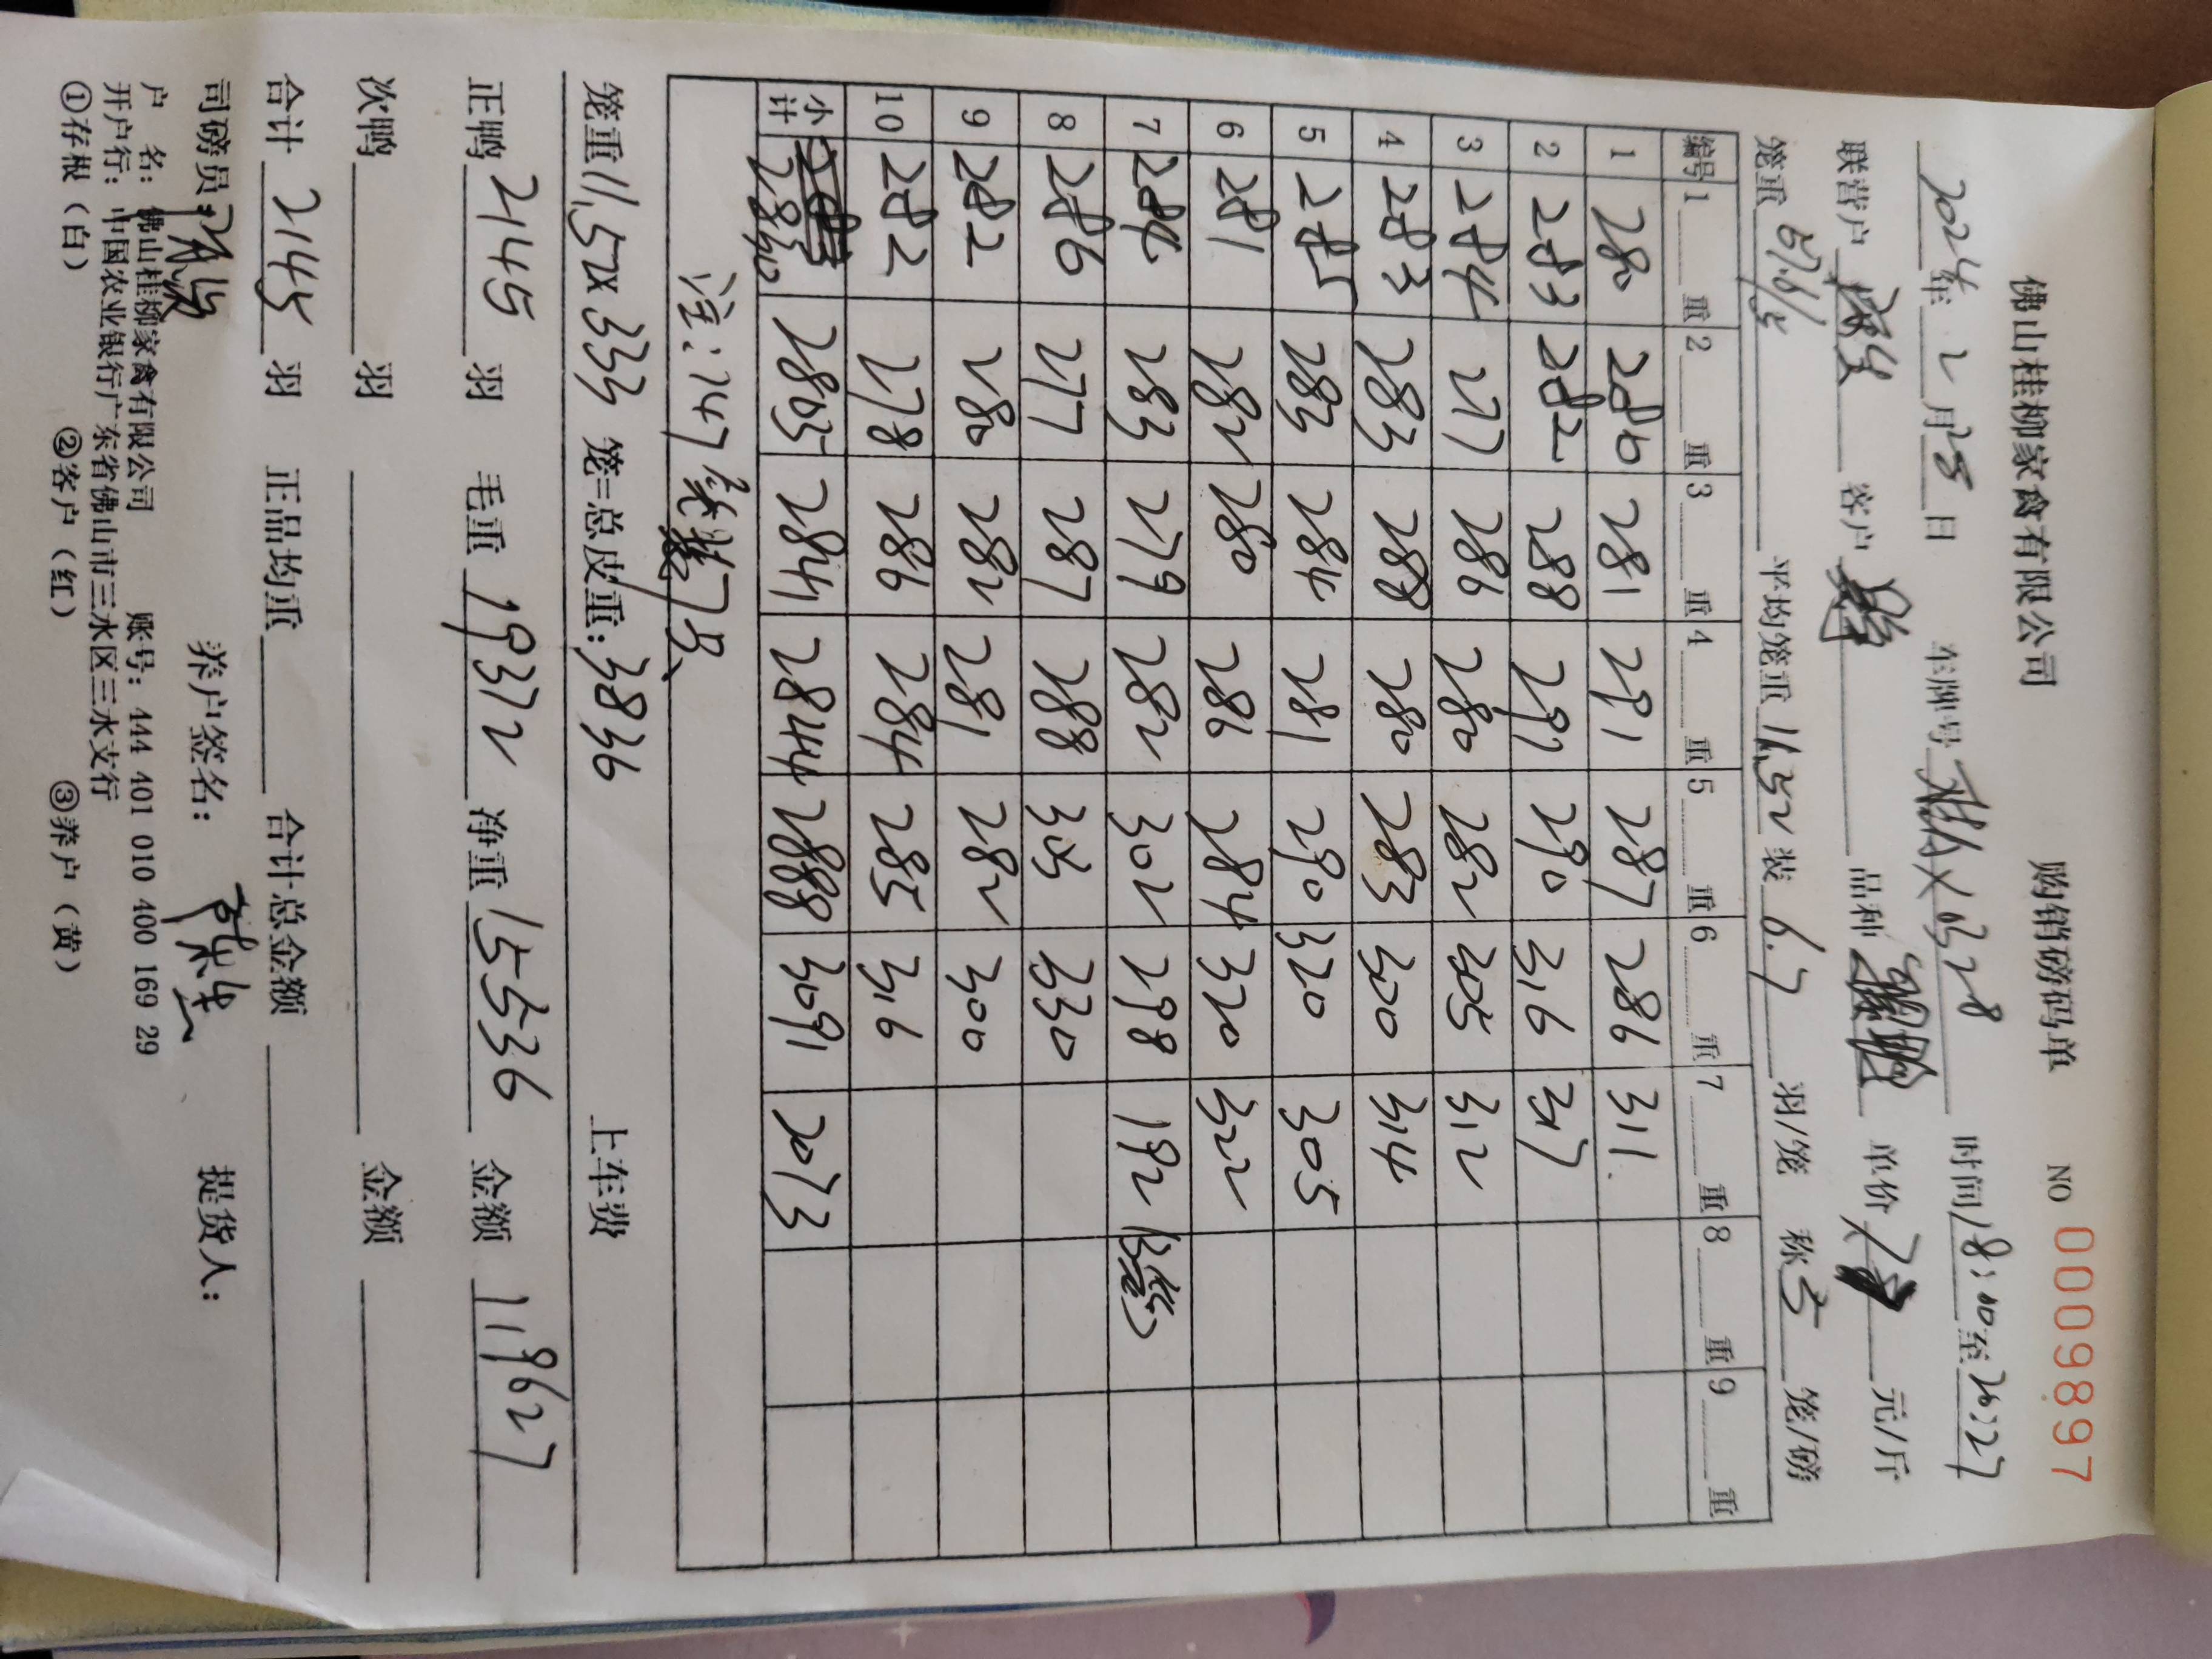 佛山桂柳家禽有限公司 购销磅码单 NO 0009897
2024年 2 月 25 日 车牌号 6328 时间 18:00 至 20:27
联营户 客户 品种 单价 7 元/斤
笼重 576/5 平均笼重 11.52 装 6.7 羽/笼 称 5 笼/磅
编号 1 重 2 重 3 重 4 重 5 重 6 重 7 重 8 重 9 重
1 280 280 281 291 287 286 311
2 283 282 288 291 290 316 317
3 284 277 286 280 282 305 312
4 283 283 288 280 283 300 314
5 285 283 284 281 290 320 305
6 281 282 280 286 284 320 322
7 284 283 279 282 302 298 192
8 286 277 287 288 303 330
9 282 280 282 281 282 300
10 282 278 286 284 285 316
小计 2830 2805 2841 2844 2888 3091 2073
注:147
笼重 11.52 x 333 笼=总皮重: 3836 上车费
正鸭 2145 羽 毛重 19372 净重 15536 金额 119627
次鸭 羽 金额
合计 2145 羽 正品均重 合计总金额
司磅员: 养户签名: 提货人:
户 名: 佛山桂柳家禽有限公司 账号: 444 401 010 400 169 29
开户行: 中国农业银行广东省佛山市三水区三水支行
①存根(白) ②客户(红) ③养户(黄)